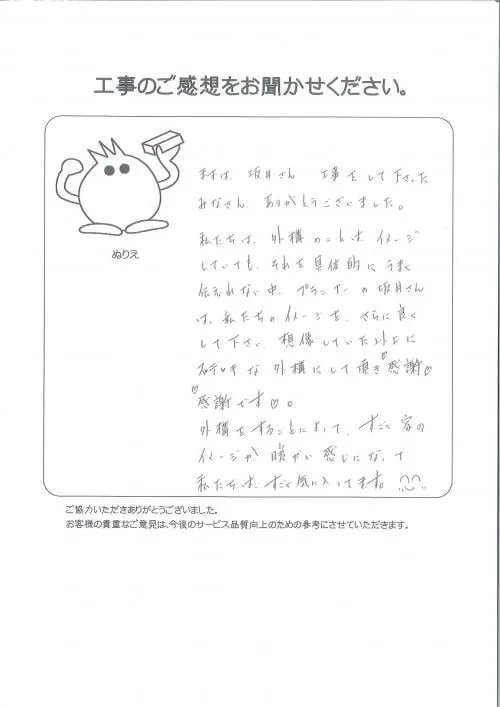 工事のご感想をお聞かせください。
ぬりえ
まずは、坂井さん 工事をして下さった
みなさん、ありがとうございました。
私たちは、外構のことは、イメージ
していても、それを具体的にうまく
伝えれない中、プランナーの坂井さん
は、私たちのイメージを、さらに良く
して下さい、想像していた以上に
ステキな外構にして頂き感謝♡
感謝です♡。
外構をすることによって、すごく家の
イメージが暖かい感じになって
私たちは、すごく気に入ってます。
ご協力いただきありがとうございました。
お客様の貴重なご意見は、今後のサービス品質向上のための参考にさせていただきます。